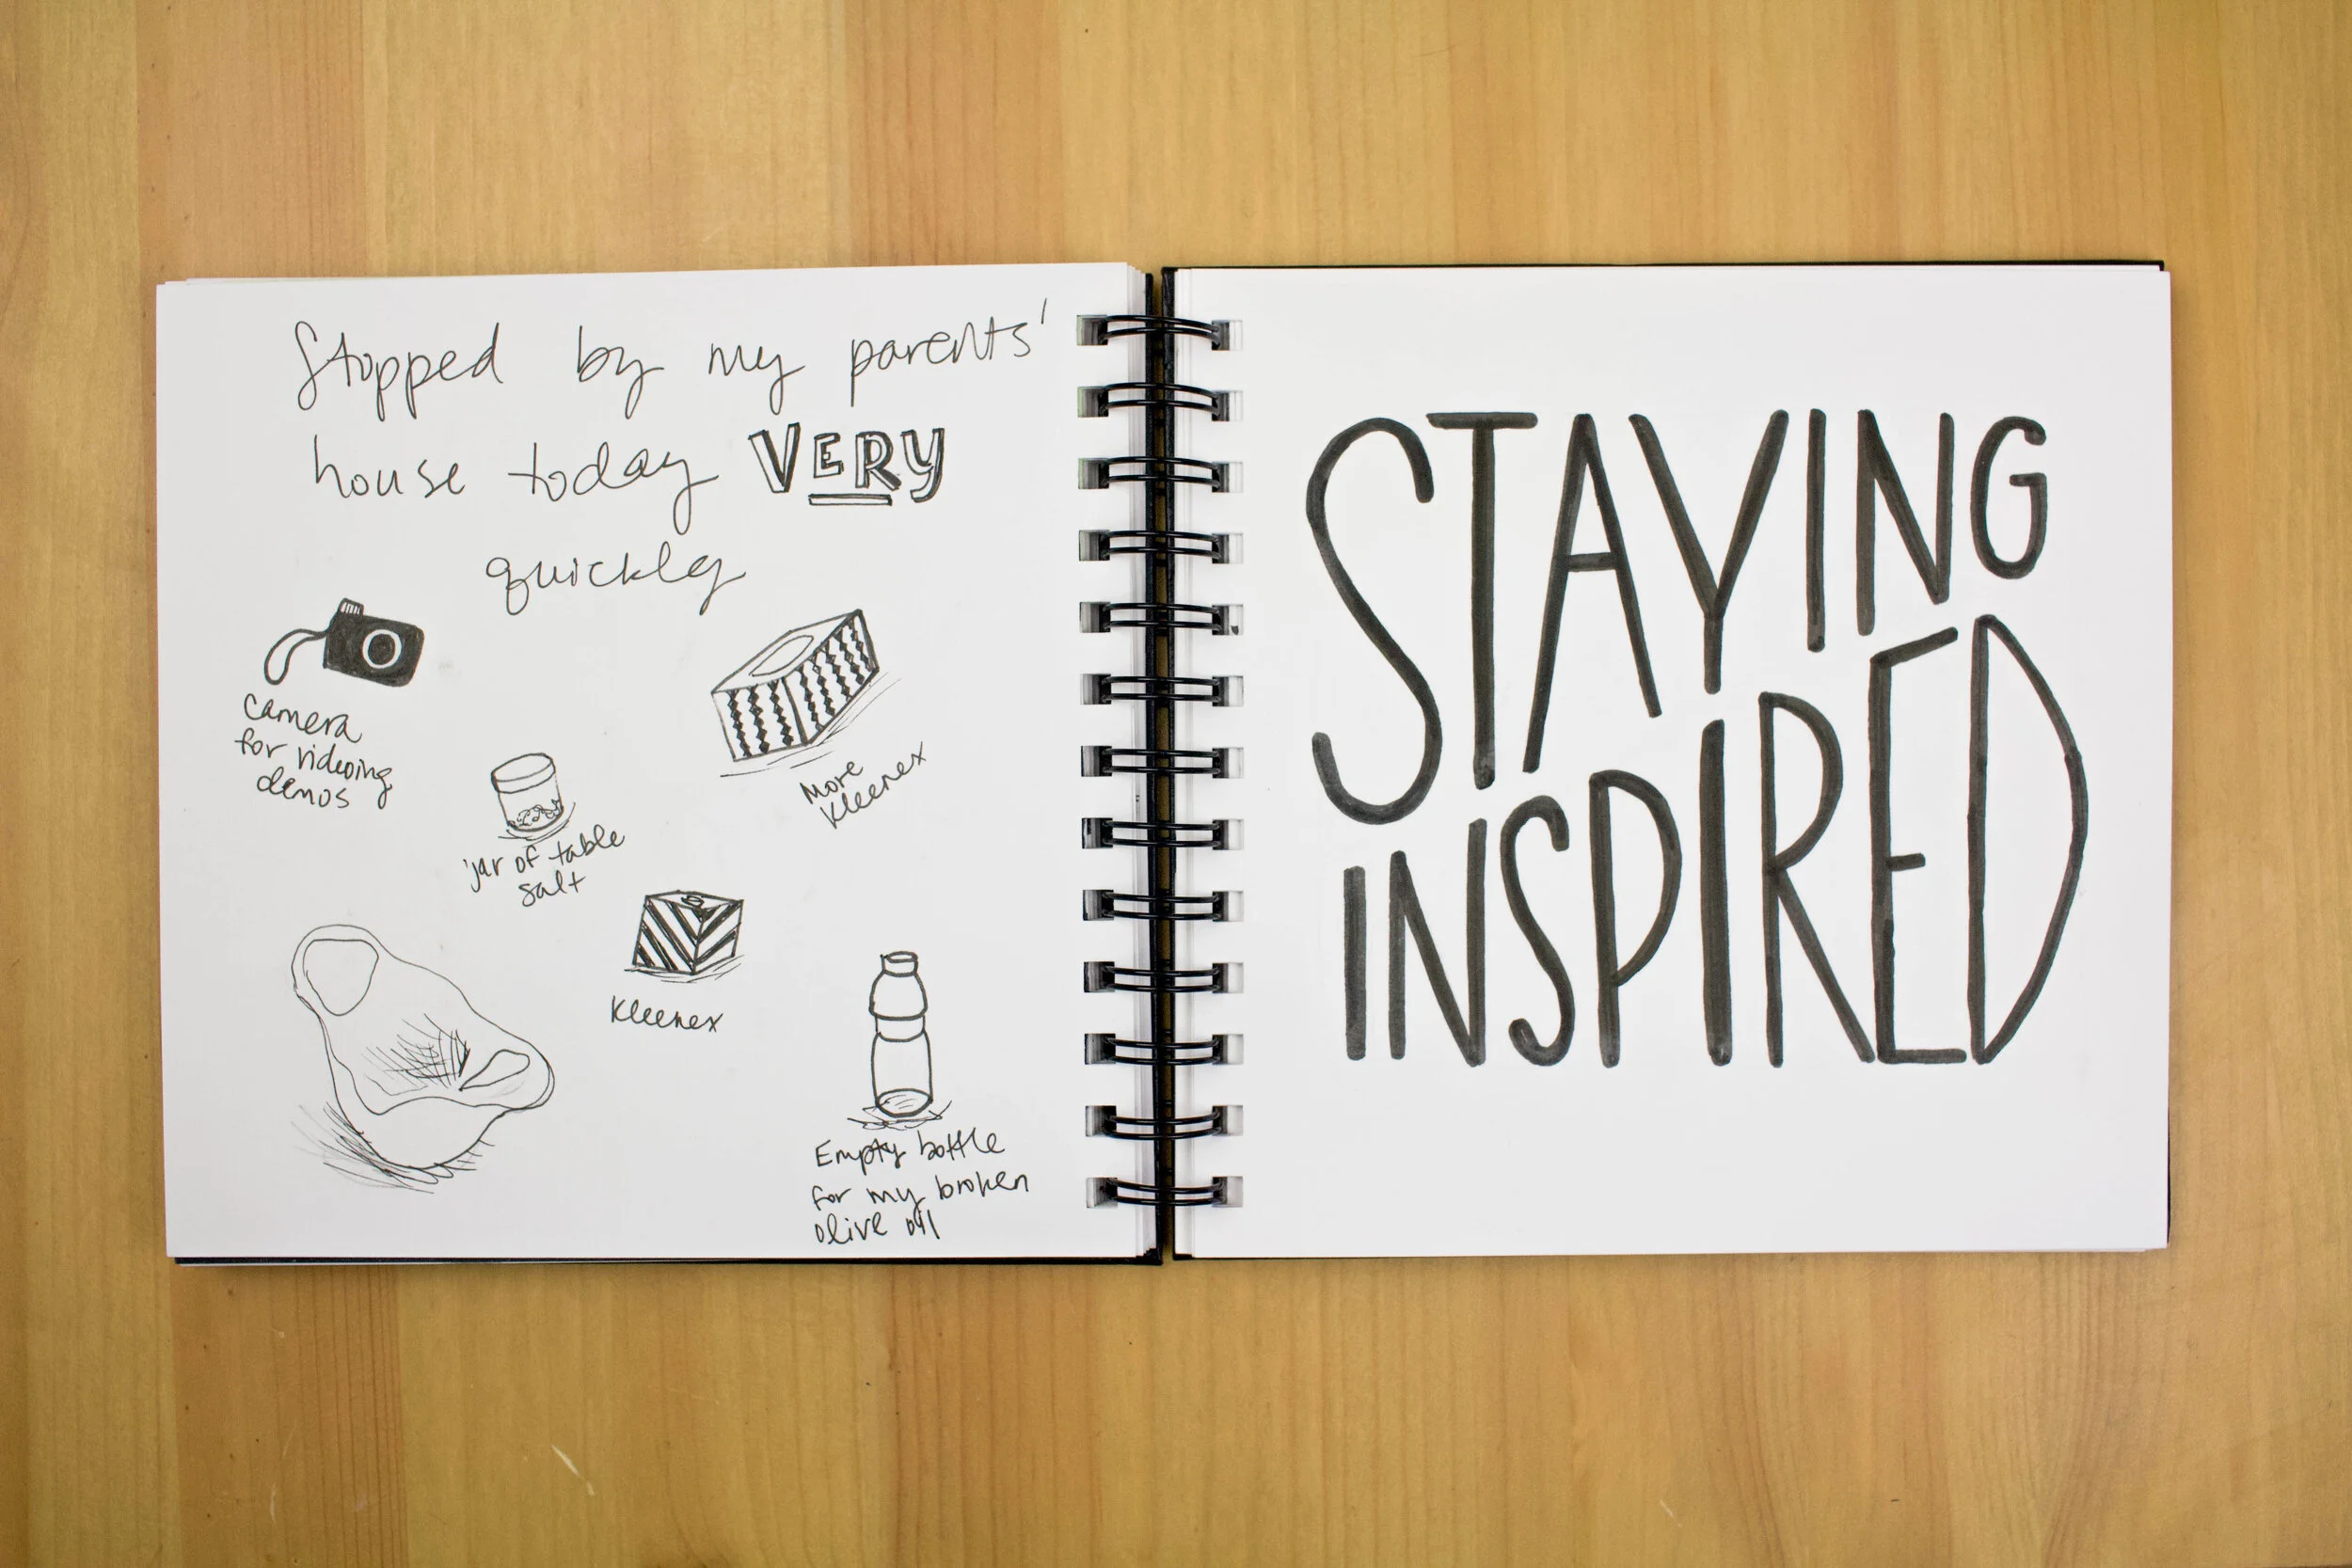 Stopped by my parents'
house today VERY
quickly
camera
for videoing
demos
More
Kleenex
jar of table
salt
Kleenex
Empty bottle
for my broken
olive oil
STAYING
INSPIRED